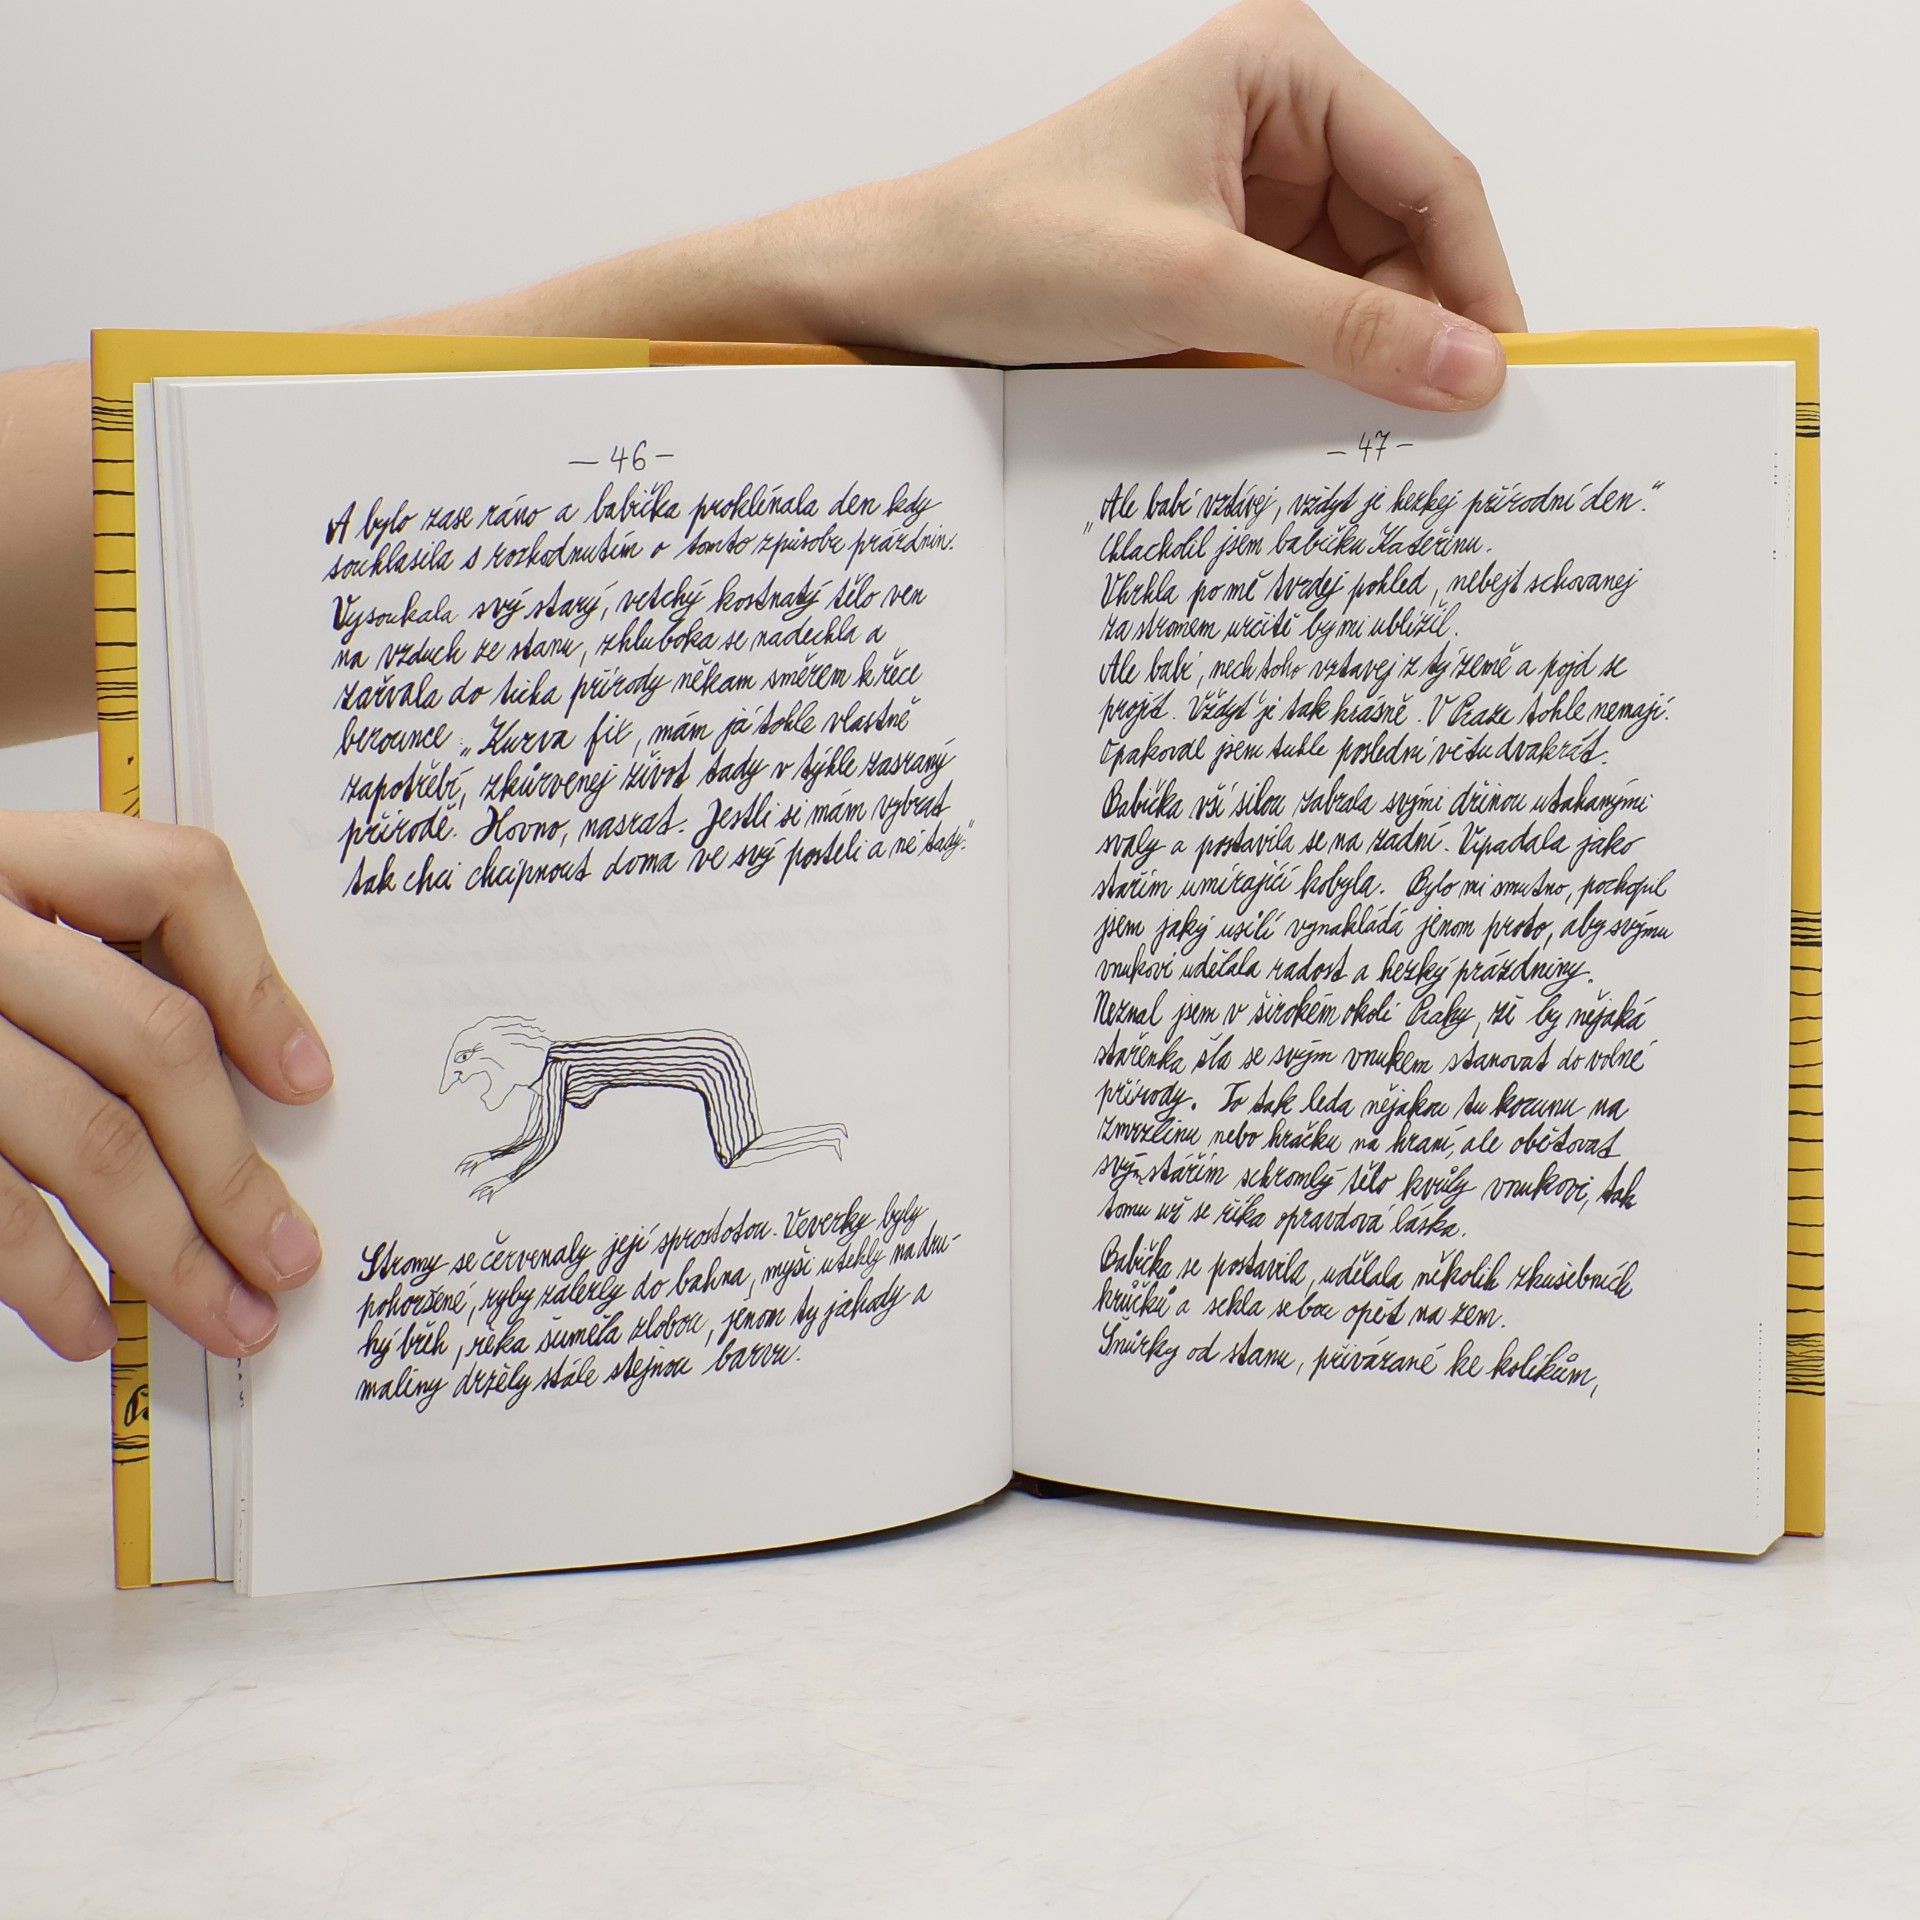 — 46 —
A bylo zase ráno a babička proklínala den kdy
souhlasila s rozhodnutím o tomto způsobu prázdnin.
Vysoukala svý starý, vetchý kostnatý tělo ven
na vzduch ze stanu, zhluboka se nadechla a
zařvala do ticha přírody někam směrem k řece
berounce „Kurva fix, mám já tohle vlastně
zapotřebí, zkurvenej život tady v týhle zasraný
přírodě. Hovno, nasrat. Jestli si mám vybrat
tak chci chcípnout doma ve svý posteli a né tady."
Stromy se červenaly její sprostotou. Veverky byly
pohoršené, ryby zalezly do bahna, myši utekly na dru-
hý břeh, řeka šuměla zlobou, jenom ty jahody a
maliny držely stále stejnou barvu.
— 47 —
„Ale babi vztávej, vždyt je hezkej přírodní den."
Chlácholil jsem babičku Kateřinu.
Vhrkla po mě tvrdej pohled, nebejt schovanej
za stromem určitě by mi ublížil.
Ale babi, nech toho vztavej z tý země a pojd se
projít. Vždyť je tak krásně. V Praze tohle nemají.
Opakoval jsem tuhle poslední větu dvakrát.
Babička vší silou zabrala svými dřinou utahanými
svaly a postavila se na zadní. Vipadala jako
stařím umírající kobyla. Bylo mi smutno, pochopil
jsem jaký usilí vynakládá jenom proto, aby svýmu
vnukovi udělala radost a hezký prázdniny.
Neznal jsem v širokém okolí Prahy, že by nějaká
stařenka šla se svým vnukem stanovat do volné
přírody. To tak leda nějakou tu korunu na
zmrzlinu nebo hračku na hraní, ale obětovat
svý stářím schromlý tělo kvůly vnukovi, tak
tomu už se říká opravdová láska.
Babička se postavila, udělala několik zkušebních
krůčků a sekla sebou opět na zem.
Šnůrky od stanu, přivázané ke kolíkům,